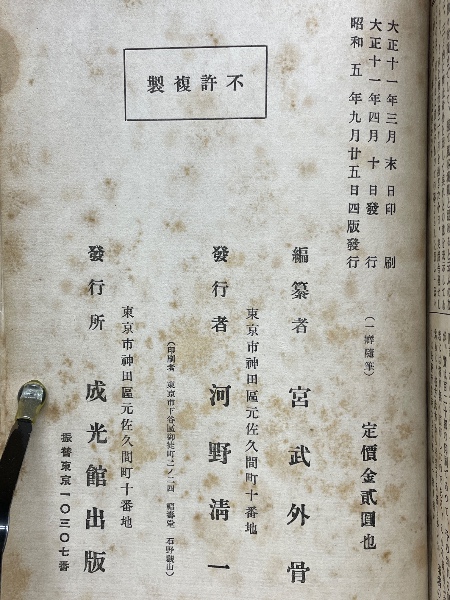 大正十一年三月末日印刷
大正十一年四月十日發行
昭和五年九月廿五日四版發行
不許複製
(一癖隨筆)
定價金貳圓也
編纂者 宮武外骨
東京市神田區元佐久間町十番地
發行者 河野淸一
(印刷者 東京市下谷區御徒町二ノ二四 福壽堂 石野觀山)
東京市神田區元佐久間町十番地
發行所 成光館出版
振替東京一〇三〇七番